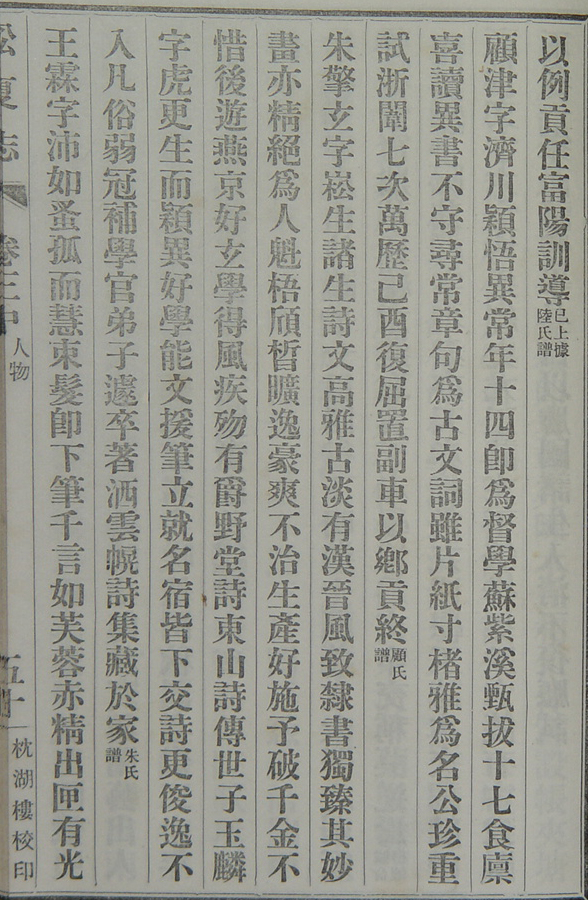 以例貢任富陽訓導已上據陸氏譜
顧津字濟川穎悟異常年十四卽爲督學蘇紫溪甄拔十七食廩
喜讀異書不守尋常章句爲古文詞雖片紙寸楮雅爲名公珍重
試浙闈七次萬歷己酉復屈置副車以鄉貢終顧氏譜
朱擎玄字崧生諸生詩文高雅古淡有漢晉風致隸書獨臻其妙
畫亦精絕爲人魁梧頎晳曠逸豪爽不治生產好施予破千金不
惜後遊燕京好玄學得風疾歿有爵野堂詩東山詩傳世子玉麟
字虎更生而穎異好學能文援筆立就名宿皆下交詩更俊逸不
入凡俗弱冠補學官弟子遽卒著洒雲幌詩集藏於家朱氏譜
王霖字沛如蚤孤而慧束髮卽下筆千言如芙蓉亦精出匣有光
松夏志 卷三中 人物 五十 枕湖樓校印